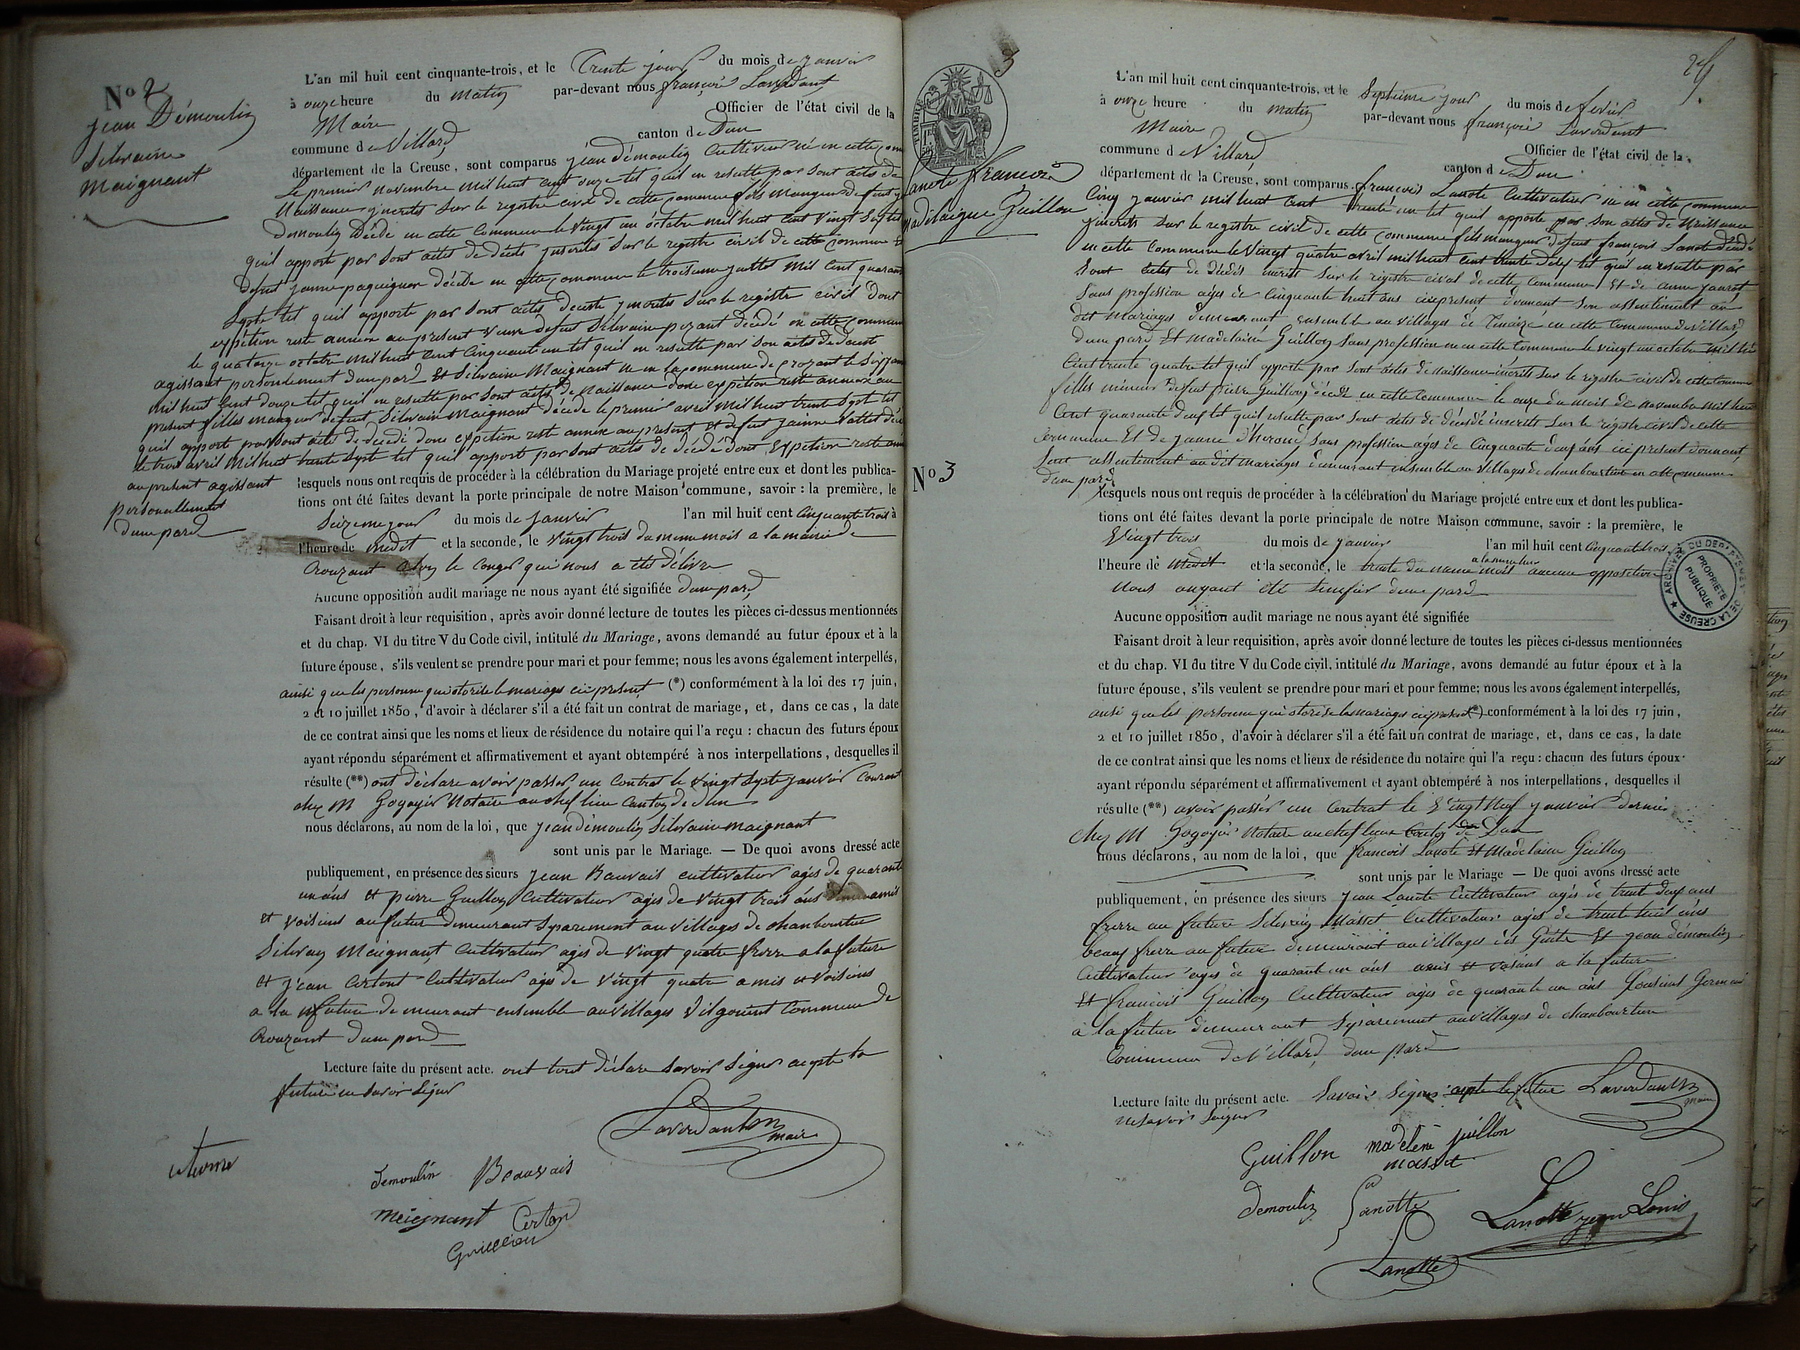 No 2
jean Démoulin
Silvaine
Maignant
L'an mil huit cent cinquante-trois, et le Trente jour du mois de janvier
à onze heure du matin par-devant nous françois Laverdant
Maire Officier de l'état civil de la
commune de Villard canton de Dun
département de la Creuse, sont comparus jean démoulin Cultivateur né en cette com
Le premier novembre mil huit cent onze tel quil en resulte par sont actes de
Naissance jnscrites sur le registre civil de cette commune fils mangeur defeut
Demoulin Décéde en cette Commune le vingt un octobre mil huit cent vingt sept tel
quil apporte par sont actes de décéde jnscrites sur le registre civil de cette commune Et
defeut janne paquignon décéde en cette comomune le troisieme juillet mil cent quarante
Septe tel quil apporte par sont actes décéde jnscrites sur le registre civil dont
expétion reste annexe au présent veuve defeut Silvaine pizant décédé en cette commune
le quatorze octobre mil huit cent Cinquant un tel quil en resulte par son actes de décéde
agissant personelement dune pard Et Silvaine Maignant né en la commune de crozant le six juin
mil huit Cent douze tel quil en resulte par sont actes de Naissance donc expétion reste annexe au
present filles mangeur defeut Silvain Maignant décéde le premier avril mil huit trent Septe tel
quil apport par sont acte de décédé donc expétion reste annexe au présent Et defeut janne Vallet décé
le trois avril Mil huit trente Septe tel quil apporte par sont actes de décéde dont Expétion reste ann
au présent agissant
personnellement
dune pard
lesquels nous ont requis de procéder à la célébration du Mariage projeté entre eux et dont les publica-
tions ont été faites devant la porte principale de notre Maison commune, savoir : la première, le
Seizeme jour du mois de janvier l'an mil huit cent Cinquante trois à
l'heure de medit et la seconde, le vingt trois du meme mois a la mairie de
Crouzant selon le Conges qui nous a été délivre
Aucune opposition audit mariage ne nous ayant été signifiée dune pard
Faisant droit à leur requisition, après avoir donné lecture de toutes les pièces ci-dessus mentionnées
et du chap. VI du titre V du Code civil, intitulé du Mariage, avons demandé au futur époux et à la
future épouse, s'ils veulent se prendre pour mari et pour femme; nous les avons également interpellés,
ainsi que les personne qui otorise le mariages ici present (*) conformément à la loi des 17 juin,
2 et 10 juillet 1850, d'avoir à déclarer s'il a été fait un contrat de mariage, et, dans ce cas, la date
de ce contrat ainsi que les noms et lieux de résidence du notaire qui l'a reçu : chacun des futurs époux
ayant répondu séparément et affirmativement et ayant obtempéré à nos interpellations, desquelles il
résulte (**) ont déclare avoir passer un Contrat le vingt Septe janvier Courant
chez M Gogoyer Notaire au chef lieu Canton de dun
nous déclarons, au nom de la loi, que jean démoulin Silvaine maignant
sont unis par le Mariage. — De quoi avons dressé acte
publiquement, en présence des sieurs Jean Bauvais cultivateur agés de quarante
un ans et pierre Guillon Cultivateur agés de vingt trois ans amis
et voisins au futur demeurant Séparement au villages de chanbourtin
Silvain Maignant Cultivateur agés de vingt quatre frere a la future
et jean Certont Cultivateur agés de vingt quatre amis et voisins
a la future demeurant ensemble au villages Commune de
Crouzant dune pard
Lecture faite du présent acte. ont tout déclare savoir Signer acepte la
future en savoir Signer
Laverdant
maire
demoulin Beauvais
meignant Certon
Guillion
Lanote francois
Madelaigne Guillon
No 3
3
L'an mil huit cent cinquante-trois, et le Septieme jour du mois de fevrier
à onze heure du matin par-devant nous françois Laverdant
Maire Officier de l'état civil de la
commune de Villard canton de Dun
département de la Creuse, sont comparus françois Lanote Cultivateur né en cette commune
Cinq janvier mil huit cent trente un tel quil apporte par son actes de Naissance
jnscrits sur le registre civil de cette commune fils mangeur defeut françois Lanote décédé
en cette commune le vingt quatre avril mil huit cent trente tel quil en resulte par
Sont actes de décés jnscrits sur le registre civil de cette commune Et de anne jaurot
Sans profession agés de Cinquante huit ans ici present donnant Son assentiment au
dit Mariages demeurant ensemble au villages de en cette Commune de Villard
dune pard Et Madelaine Guillon Sans profession né en cette Commune le vingt un octobre mil huit
Cent trente quatre tel quil apporte par sont actes de naissance inscrits sur le registre civil de cette commune
filles mineur defeut pierre Guillon décéde en cette commune le onze du mois de novembre mil huit
Cent quarante tel quil resulte par sont actes de décés inscrits sur le registre civil de cette
Commune Et de janne Sans profession agés de Cinquante ans ici present donnant
Sont assentement au dit mariages demeurant ensemble au villages de chanbourtin en cette commune
dune pard
lesquels nous ont requis de procéder à la célébration du Mariage projeté entre eux et dont les publica-
tions ont été faites devant la porte principale de notre Maison commune, savoir : la première, le
Vingt trois du mois de janvier l'an mil huit cent Cinquante trois
l'heure de medit et la seconde, le trente du meme mois a la meme heur aucune opposition
nous ayant été Senefier dune pard
Aucune opposition audit mariage ne nous ayant été signifiée
Faisant droit à leur requisition, après avoir donné lecture de toutes les pièces ci-dessus mentionnées
et du chap. VI du titre V du Code civil, intitulé du Mariage, avons demandé au futur époux et à la
future épouse, s'ils veulent se prendre pour mari et pour femme; nous les avons également interpellés,
ansi que les personne qui otorise le mariages ici present (*) conformément à la loi des 17 juin,
2 et 10 juillet 1850, d'avoir à déclarer s'il a été fait un contrat de mariage, et, dans ce cas, la date
de ce contrat ainsi que les noms et lieux de résidence du notaire qui l'a reçu : chacun des futurs époux
ayant répondu séparément et affirmativement et ayant obtempéré à nos interpellations, desquelles il
résulte (**) avoir passér un Contrat le Vingt Neuf janvier dernie
chez M Gogoyér Notaire au chef lieux Canton de Dun
nous déclarons, au nom de la loi, que francois Lanote Et Madelaine Guillon
sont unis par le Mariage — De quoi avons dressé acte
publiquement, en présence des sieurs Jean Lanote Cultivateur agés de trent ans
frerre au future Silvain Masset Cultivateur agés de trente huit ans
beaux freire au future demeurant au villages des Goute Et jean démoulin
Cultivateur agés de quarant un ans amis et voisins a la future
Et françois Guillon Cultivateur agés de quarante un ans Cousins Germain
à la future demeurant Séparement au villages de chanbourtin
Commune de Villard dune pard
Lecture faite du présent acte. Savoir Signer acepte le future
ne savoir Seigner
Laverdant
maire
Guillon madelene guillon
masset
demoulin Lanotte
Lanotte jean Louis
Lanotte
ARCHIVES DU DEPARTEMENT DE LA CREUSE
PROPRIETE PUBLIQUE